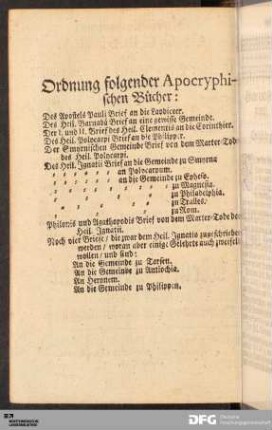 Ordnung folgender Apocryphi-
schen Bücher:
Des Apostels Pauli Brief an die Laodiceer.
Des Heil. Barnabä Brief an eine gewisse Gemeinde.
Der I. und II. Brief des Heil. Clementis an die Corinthier.
Des Heil. Polycarpi Brief an die Philipper.
Der Smyrnischen Gemeinde Brief von dem Marter-Tode
des Heil. Polycarpi.
Des Heil. Ignatii Brief an die Gemeinde zu Smyrna
an Polycarpum.
an die Gemeinde zu Epheso.
zu Magnesia.
zu Philadelphia.
zu Tralles.
zu Rom.
Philonis und Agathopodis Brief von dem Marter-Tode des
Heil. Ignatii.
Noch vier Briefe / die zwar dem Heil. Ignatio zugeschrieben
werden / woran aber einige Gelehrte auch zweifeln
wollen / und sind:
An die Gemeinde zu Tarsen.
An die Gemeinde zu Antiochia.
An Heronem.
An die Gemeinde zu Philippen.
DFG Deutsche
Forschungsgemeinschaft